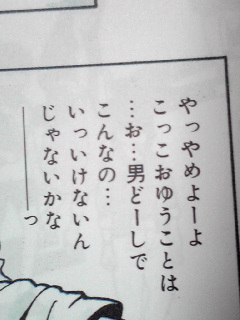 やっやめよーよ
こっこおゆうことは
…お…男どーしで
こんなの…
いっいけないん
じゃないかな
―――っ